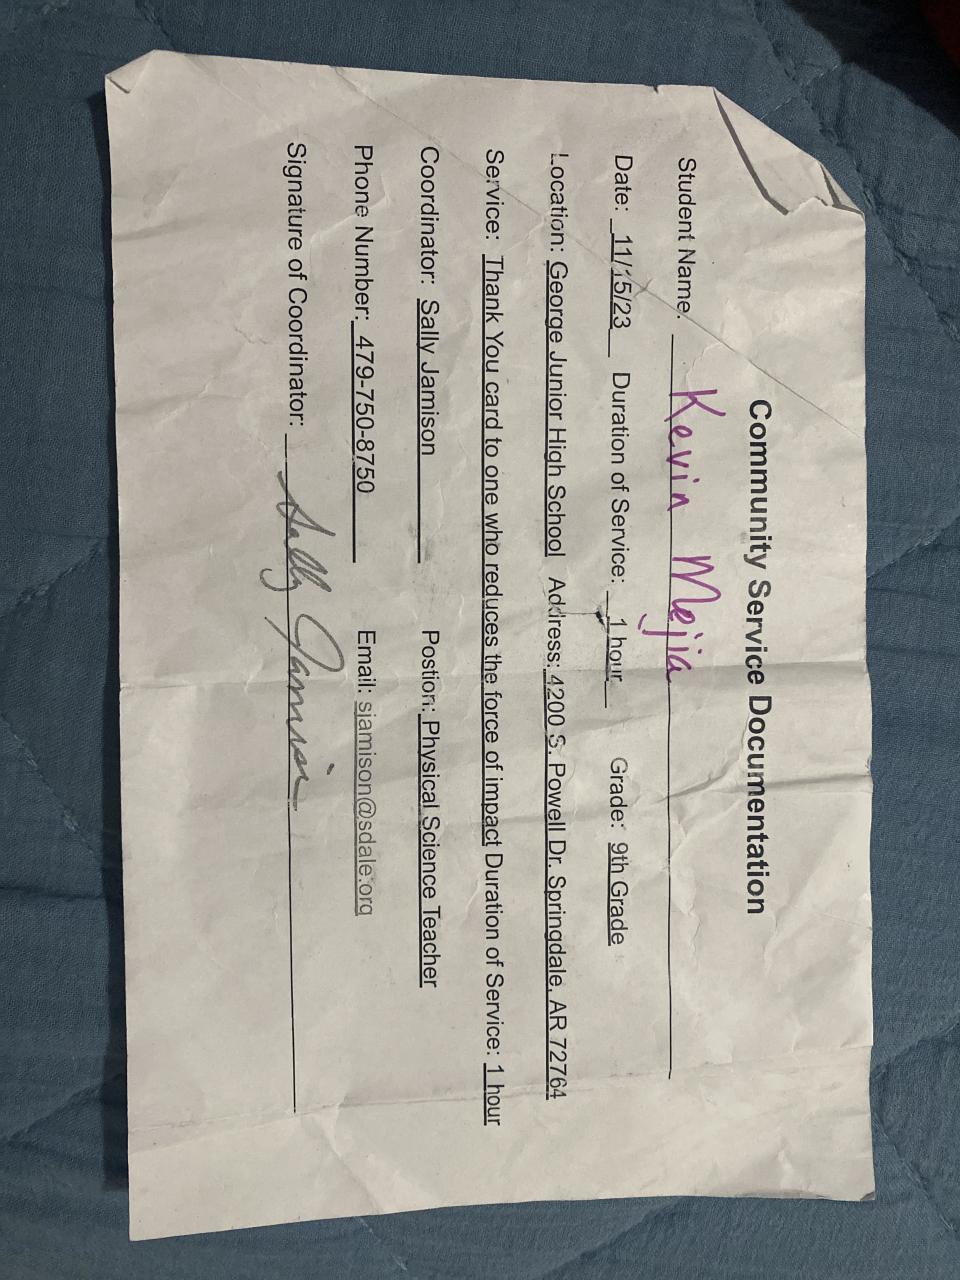 Community Service Documentation
Student Name: Kevin Mejia
Date: 11/15/23 Duration of Service: 1 hour Grade: 9th Grade
Location: George Junior High School Address: 4200 S. Powell Dr. Springdale, AR 72764
Service: Thank You card to one who reduces the force of impact Duration of Service: 1 hour
Coordinator: Sally Jamison Postion: Physical Science Teacher
Phone Number: 479-750-8750 Email: sjamison@sdale.org
Signature of Coordinator: Sally Jamison